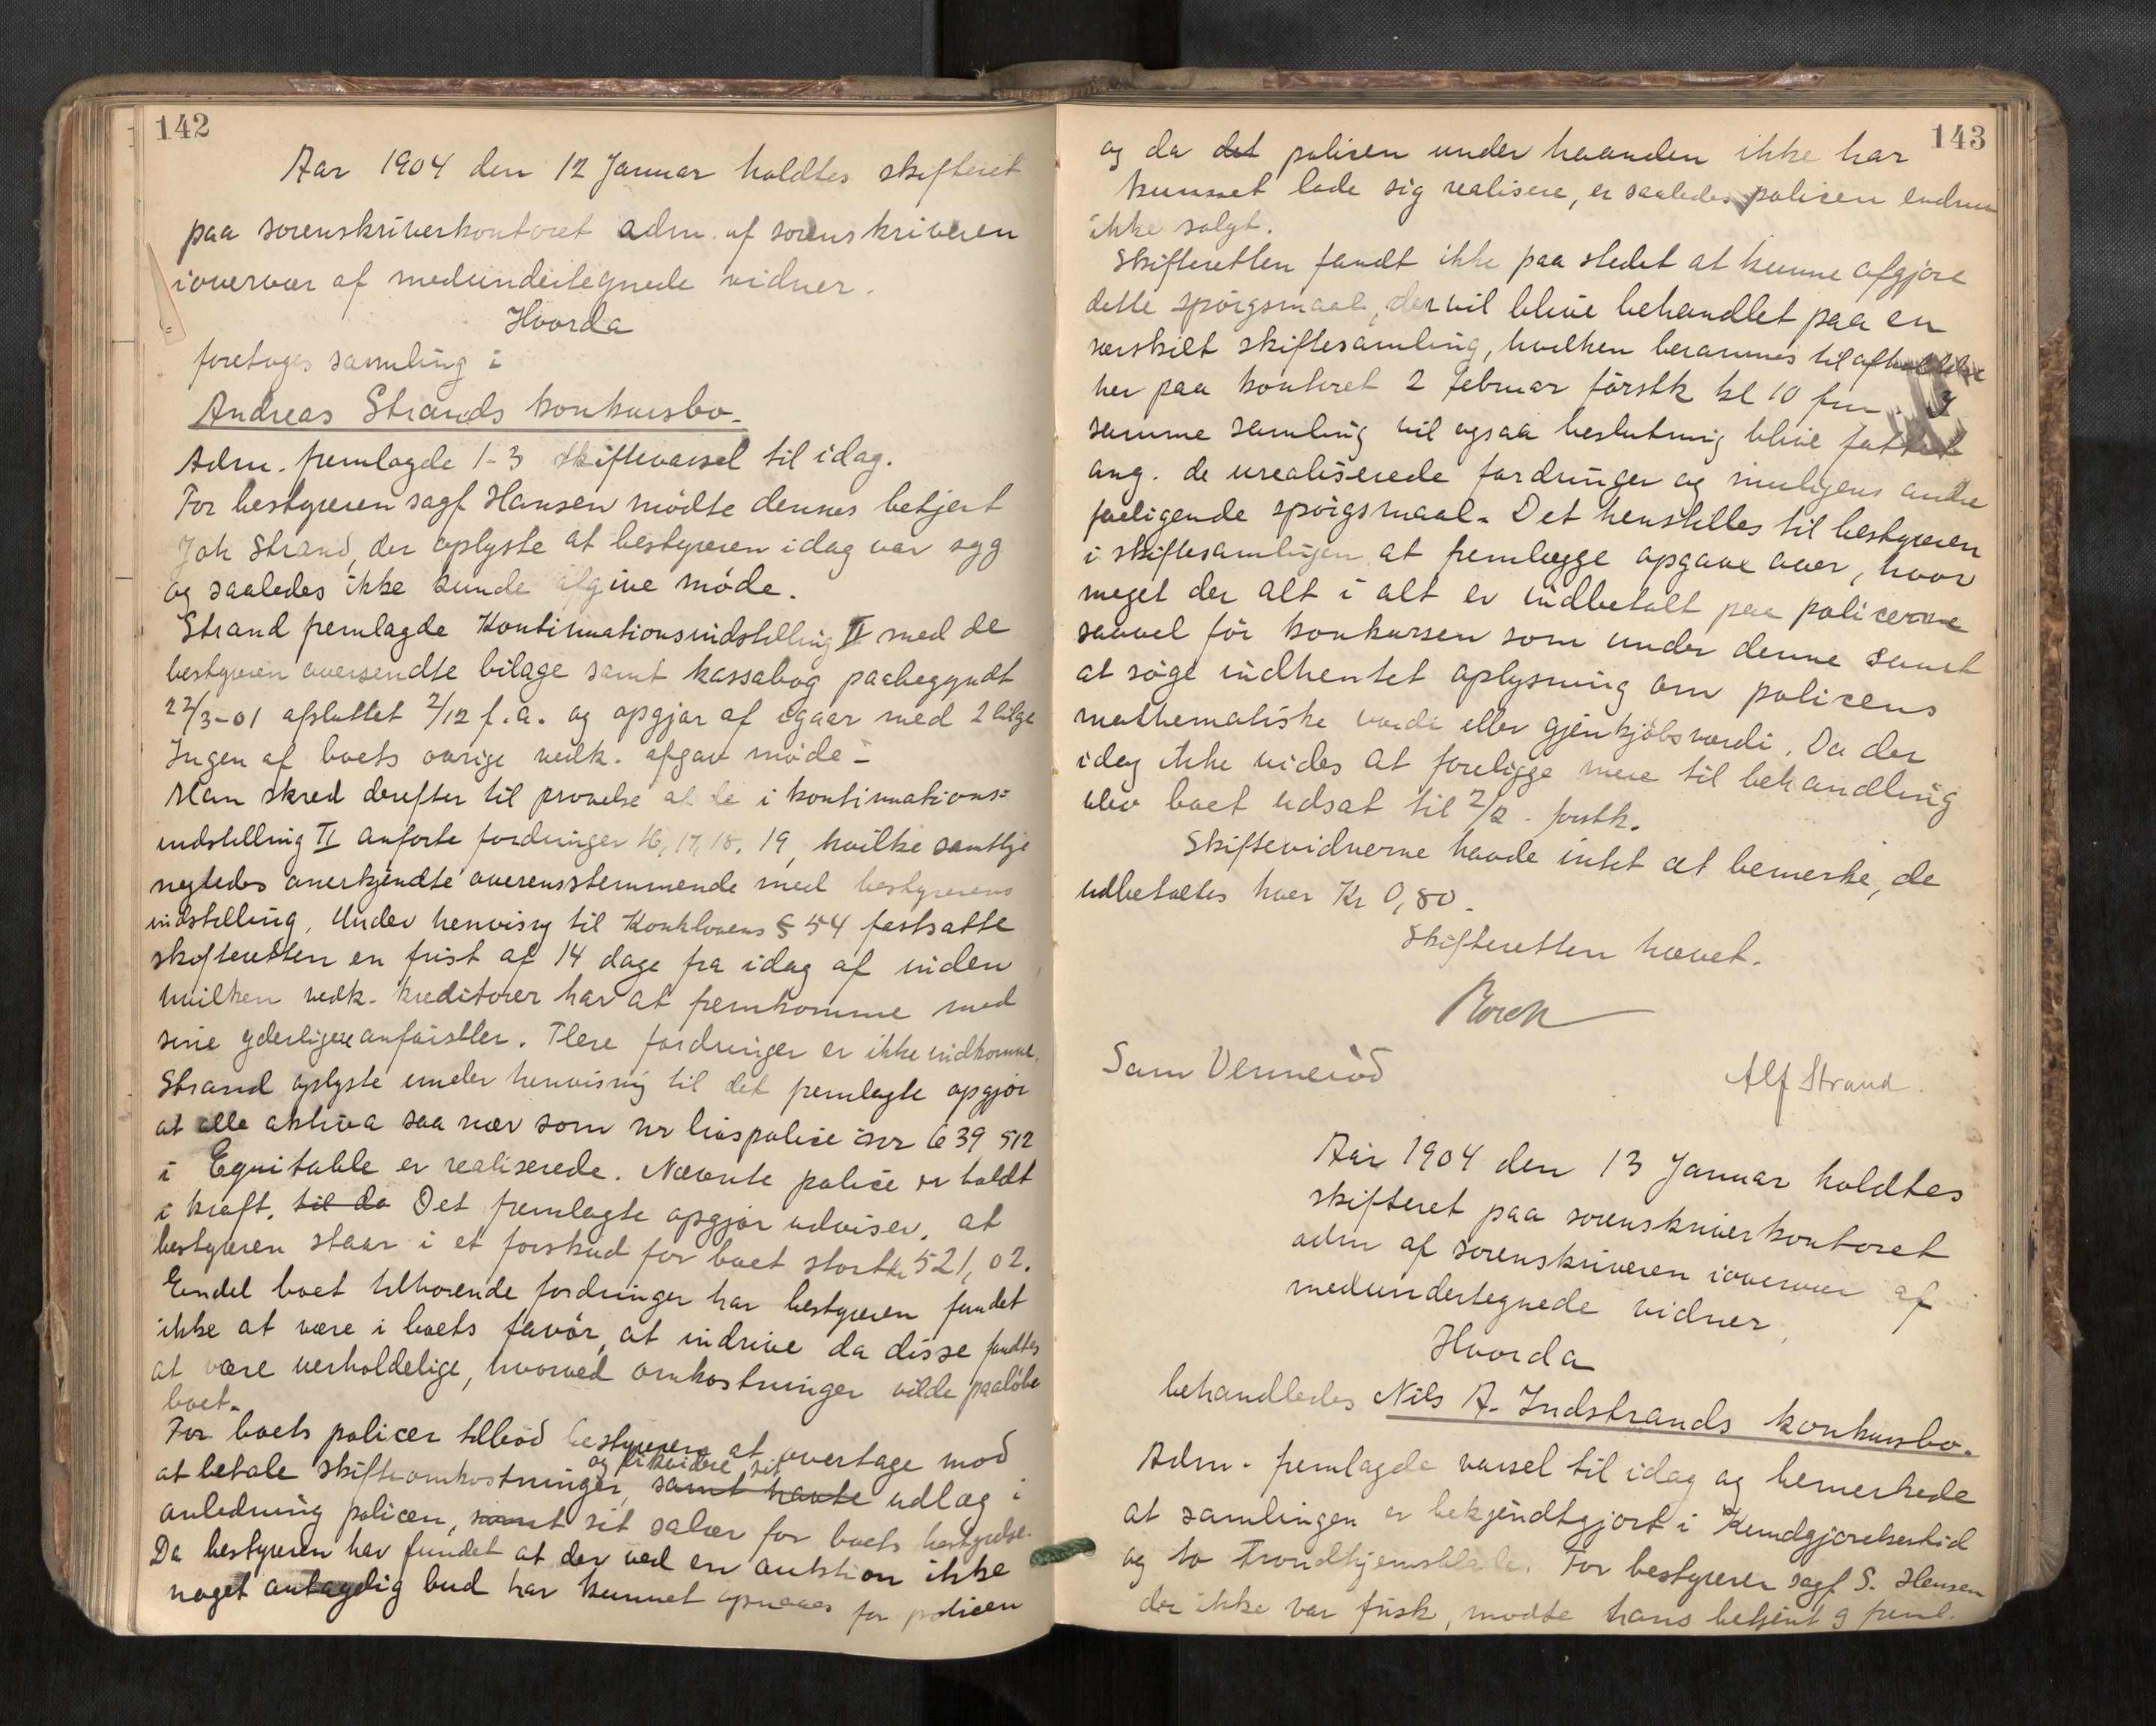 142
Aar 1904 den 12 Januar holdtes skifteret
paa sorenskriverkontoret adm. af sorenskriveren
i overvær af medundertegnede vidner.
Hvorda
foretoges samling i
Andreas Strands konkursbo.
Adm. fremlagde 1-3 skiftevarsel til idag.
For bestyreren sagf Hansen mødte dennes betjent
Joh Strand, der oplyste at bestyreren idag var syg
og saaledes ikke kunde afgive møde.
Strand fremlagde Kontinuationsindstilling II med de
bestyreren oversendte bilage samt kassabog paabegyndt
22/3-01 afsluttet 2/12 f.a. og opgjør af igaar med 2 bilge
Ingen af boets øvrige vedk. afgav møde -
Man skred derefter til prøvelse af de i kontinuations=
indstilling II anførte fordringer 16, 17, 18, 19, hvilke samtlige
negtedes anerkjendte overensstemmende med bestyrerens
indstilling. Under henvisng til Konklovens § 54 fastsatte
skifteretten en frist af 14 dage fra idag af inden
hvilken vedk. kreditorer har at fremkomme med
sine yderligere anførsler. Flere fordringer er ikke indkomne.
Strand oplyste under henvisning til det fremlagte opgjør
at alle aktiva saa nær som nr livspolice 639 512
i Equitable er realiserede. Nævnte police er holdt
i kraft. til da Det fremlagte opgjør udviser, at
bestyreren staar i et forskud for boet stort kr 521,02.
Endel boet tilhørende fordringer har bestyreren fundet
ikke at være i boets favør, at indrive da disse fandtes
at være uerholdelige, hvorved omkostninger vilde paaløbe
boet.
For boets policer tilbød bestyreren at overtage mod
og likvidere sit
at betale skifteomkostninger, samt havte udlæg i
anledning policen, samt sit salær for boets bestyrelse.
Da bestyreren har fundet at der ved en auktion ikke
noget antagelig bud har kunnet opnaaes for policen
143
og da det policen under haanden ikke har
kunnet lade sig realisere, er saaledes policen endnu
ikke solgt.
Skifteretten fandt ikke paa stedet at kunne afgjøre
dette spørgsmaal, der vil blive behandlet paa en
særskilt skiftesamling, hvilken berammes til afholdelse
her paa kontoret 2 februar førstk kl 10 fm. I
samme samling vil ogsaa beslutning blive fattet
ang. de urealiserede fordringer og muligens andre
foreligende spørgsmaal. Det henstilles til bestyreren
i skiftesamlingen at fremlægge opgave over, hvor
meget der alt i alt er indbetalt paa policerne
saavel før konkursen som under denne samt
at søge indhentet oplysning om policens
mathematiske værdi eller gjenkjøbsværdi. Da der
idag ikke vides at foreligge mere til behandling
blev boet udsat til 2/2. førstk.
Skiftevidnerne havde intet at bemerke, de
udbetaltes hver Kr 0,80.
Skifteretten hævet.
Sam Vennerød
Alf Strand.
Aar 1904 den 13 Januar holdtes
skifteret paa sorenskriverkontoret
adm af sorenskriveren i overvær af
medundertegnede vidner,
Hvorda
behandledes Nils A. Indstrands konkursbo.
Adm. fremlagde varsel til idag og bemerkede
at samlingen er bekjendtgjort i Kundgjørelsestid
og to Trondhjemsblade. For bestyreren sagf S. Hansen
der ikke var frisk, mødte hans betjent og freml.